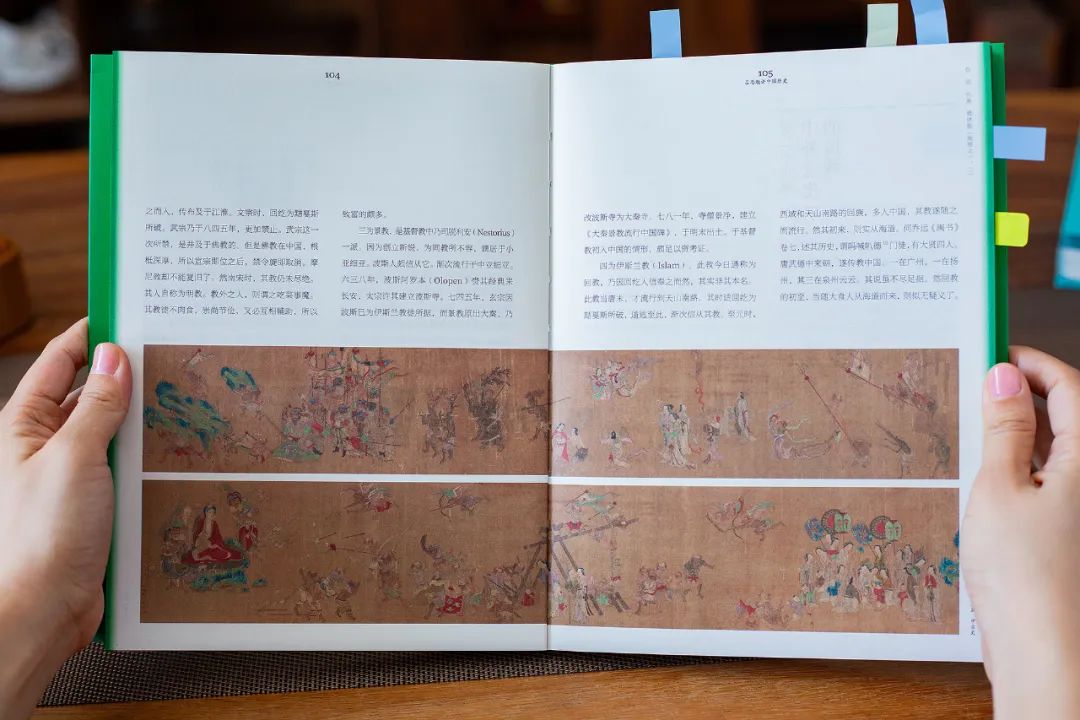 104
之而入，传布及于江淮。文宗时，回纥为黠戛斯
所破。武宗乃于八四五年，更加禁止。武宗这一
次所禁，是并及于佛教的。但是佛教在中国，根
柢深厚，所以宣宗即位之后，禁令旋即取消。摩
尼教却不能复旧了。然南宋时，其教仍未尽绝。
其人自称为明教。教外之人，则谓之吃菜事魔。
其教徒不肉食，崇尚节俭，又必互相辅助，所以
致富的颇多。
三为景教，是基督教中乃司脱利安（Nestorius）
一派。因为创立新说，为同教所不容，谪居于小
亚细亚。波斯人颇信从它。渐次流行于中亚细亚。
六三八年，波斯阿罗本（Olopen）赍其经典来
长安。太宗许其建立波斯寺。七四五年，玄宗因
波斯已为伊斯兰教徒所据，而景教原出大秦，乃
105
吕思勉 中国历史
改波斯寺为大秦寺。七八一年，寺僧景净，建立
《大秦景教流行中国碑》，于明末出土。于基督
教初入中国的情形，颇足以资考证。
四为伊斯兰教（Islam）。此教今日通称为
回教，乃因回纥人信奉之而然，其实非其本名。
此教当唐末，才流行到天山南路。其时适回纥为
黠戛斯所破，遁逃至此，渐次信从其教。至元时，
西域和天山南路的回族，多入中国，其教遂随之
而流行。然其初来，则实从海道。何乔远《闽书》
卷七，述其历史，谓吗喊叭德圣门徒，有大贤四人。
唐武德中来朝，遂传教中国。一在广州，一在扬
州，其二在泉州云云。其说虽不尽足据，然回教
的初至，当随大食人从海道而来，则似无疑义了。